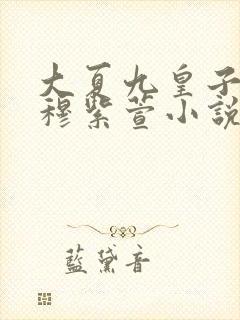 大夏九皇子
穆紫萱小說
藍黛音